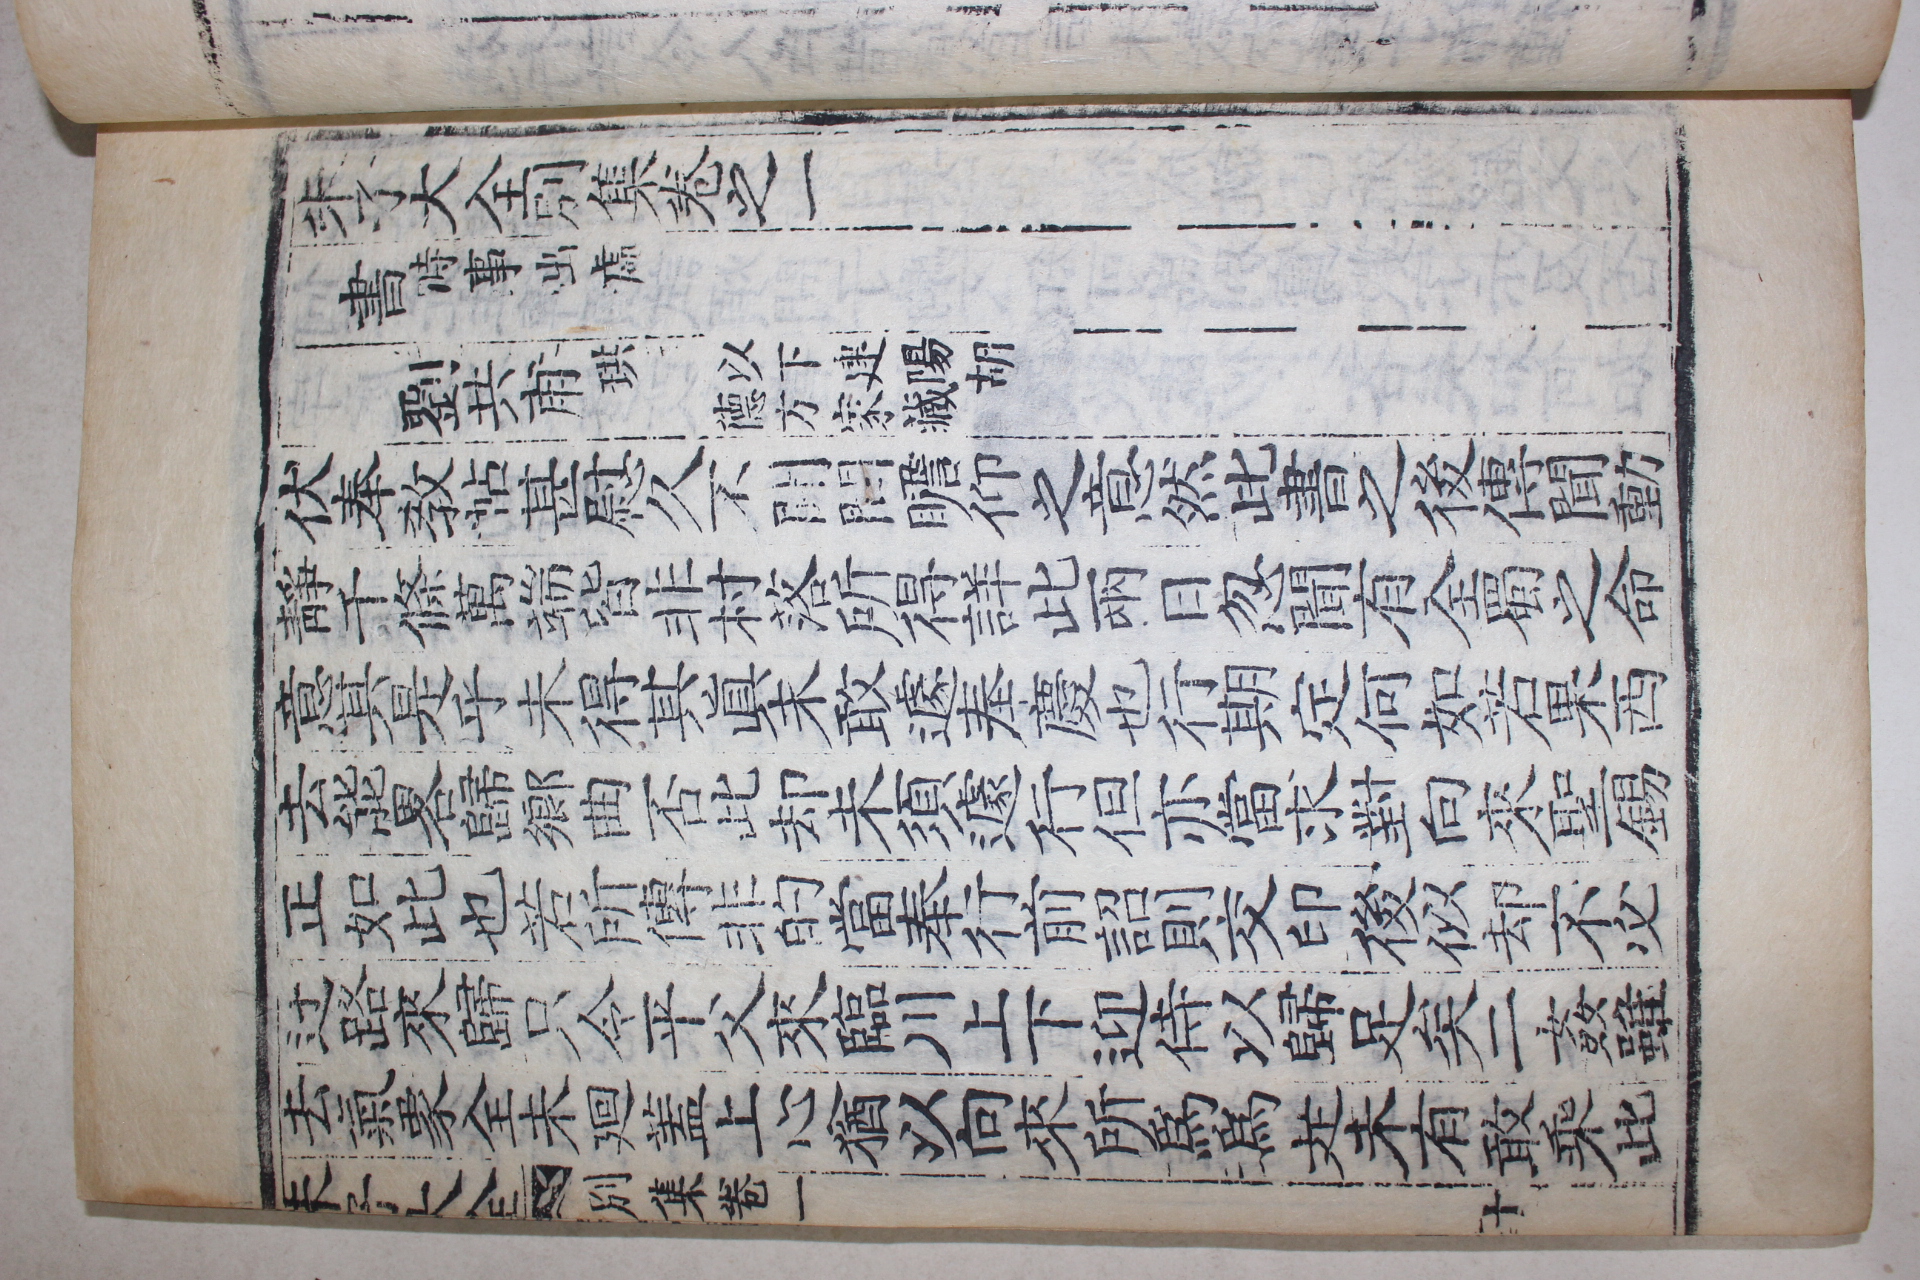 朱子大全別集卷之一
書時事出處
劉共甫 珙 以下建陽胡
德方家藏
伏奉教帖甚慰久不聞問瞻仰之意然此書之後傳聞動
靜千條萬端皆非村落所得詳此兩日忽聞有全蜀之命
意其是乎未得其真未敢遽奉慶也行期定何如若果西
去能畧歸鄉曲否此却未須遽行但亦當求對向來聖錫
正如此也若所傳非的當奉行前詔則交印後似却不必
迂路來歸只令平父來臨川上下迎侍以歸足矣二雖
去氣象全未廻蓋上心猶以向來所爲爲是未有敢乘此
朱子大全 別集卷一 十